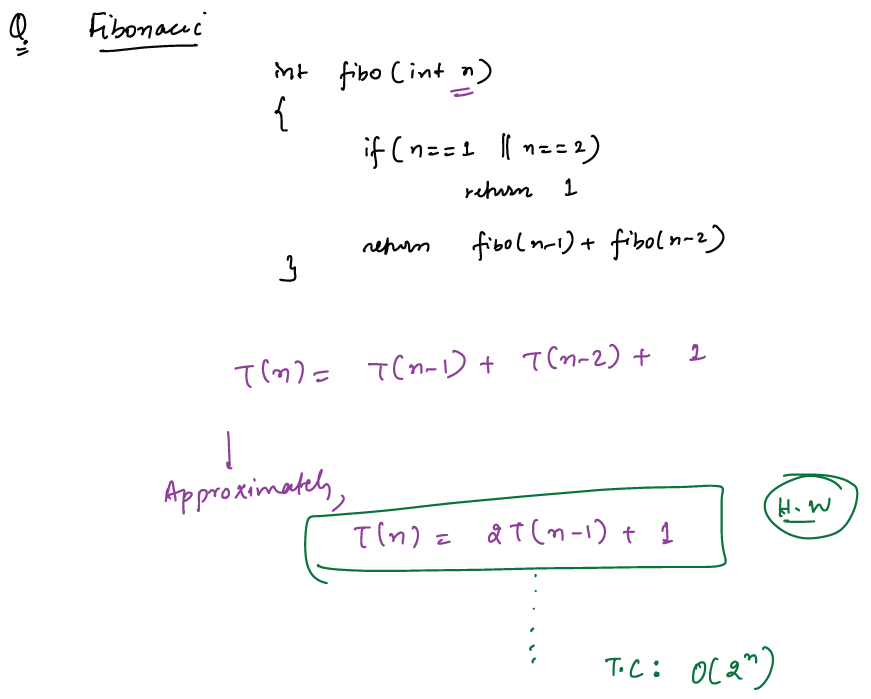 Q. Fibonacci
int fibo(int n)
{
if(n==1 || n==2)
return 1
return fibo(n-1) + fibo(n-2)
}
T(n) = T(n-1) + T(n-2) + 1
Approximately,
T(n) = 2T(n-1) + 1
H.W
T.C: O(2ⁿ)